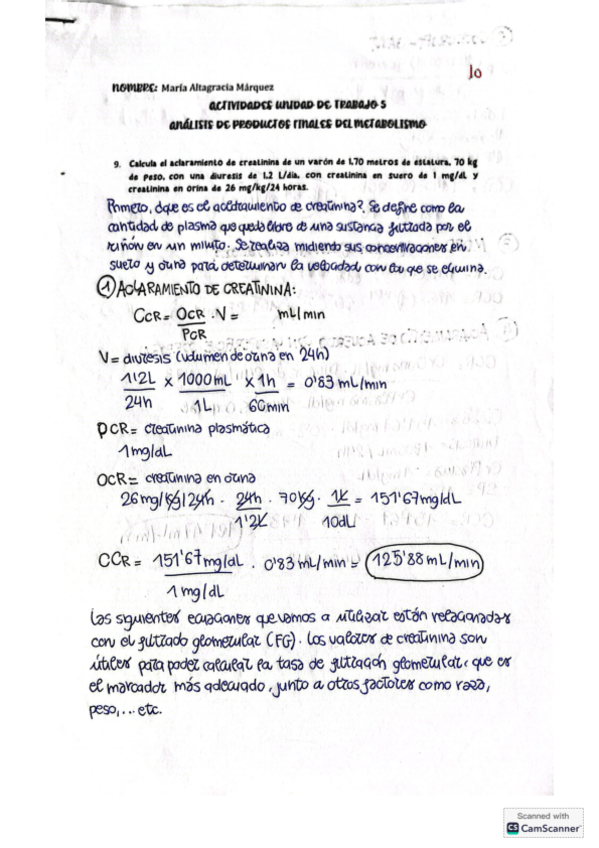 10
NOMBRE: María Altagracia Márquez
ACTIVIDADES UNIDAD DE TRABAJO 5
ANÁLISIS DE PRODUCTOS FINALES DEL METABOLISMO
9. Calcula el aclaramiento de creatinina de un varón de 1,70 metros de estatura, 70 kg
de peso, con una diuresis de 1,2 L/día, con creatinina en suero de 1 mg/dL y
creatinina en orina de 26 mg/kg/24 horas.
Primero, ¿que es el aclaramiento de creatinina?. Se define como la
cantidad de plasma que queda libre de una sustancia filtrada por el
riñón en un minuto. Se realiza midiendo sus concentraciones en
suero y orina para determinar la velocidad con la que se elimina.
① ACLARAMIENTO DE CREATININA:
CCR = OCR / PCR · V = mL/min
V = diuresis (volumen de orina en 24h)
1'2L / 24h x 1000mL / 1L x 1h / 60min = 0'83 mL/min
PCR = creatinina plasmática
1mg/dL
OCR = creatinina en orina
26mg/kg/24h · 24h / 1'2L · 70kg · 1L / 10dL = 151'67mg/dL
CCR = 151'67mg/dL / 1mg/dL · 0'83 mL/min = 125'88 mL/min
Las siguientes ecuaciones que vamos a utilizar están relacionadas
con el filtrado glomerular (FG). Los valores de creatinina son
útiles para poder calcular la tasa de filtración glomerular, que es
el marcador más adecuado, junto a otros factores como raza,
peso,... etc.
Scanned with
CS CamScanner